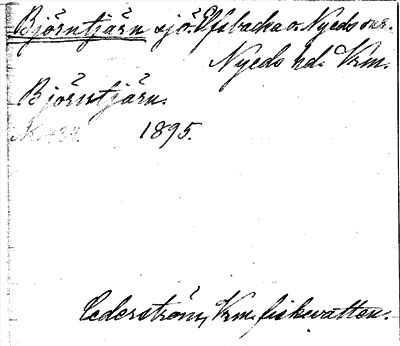 Björntjärn sjö. Elfsbacka o. Nyeds snr.
Nyeds hd. Vrm.
Björntjärn.
1895.
Cederström, Vrm. fiskevatten.